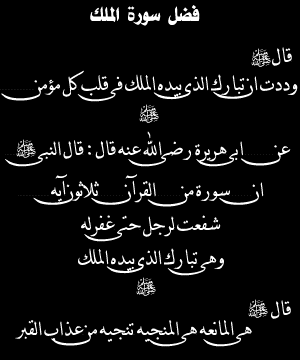 فضل سورة الملك
قال ﷺ
وددت ان تبارك الذي بيده الملك في قلب كل مؤمن
ﷺ
عن ابي هريرة رضي الله عنه قال : قال النبي ﷺ
ان سورة من القرآن ثلاثون آيه
شفعت لرجل حتى غفر له
وهي تبارك الذي بيده الملك
ﷺ
قال ﷺ
هي المانعه هي المنجيه تنجيه من عذاب القبر